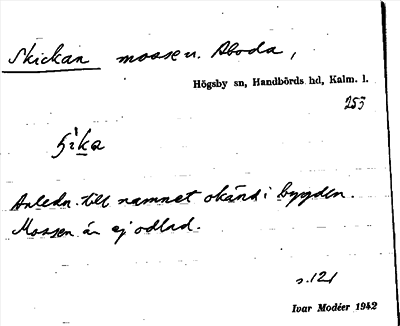 Skickan mosse v. Aboda,
Högsby sn, Handbörds hd, Kalm. l.
253
Anledn. till namnet okänd i bygden.
Mossen är ej odlad.
s. 121
Ivar Modéer 1942